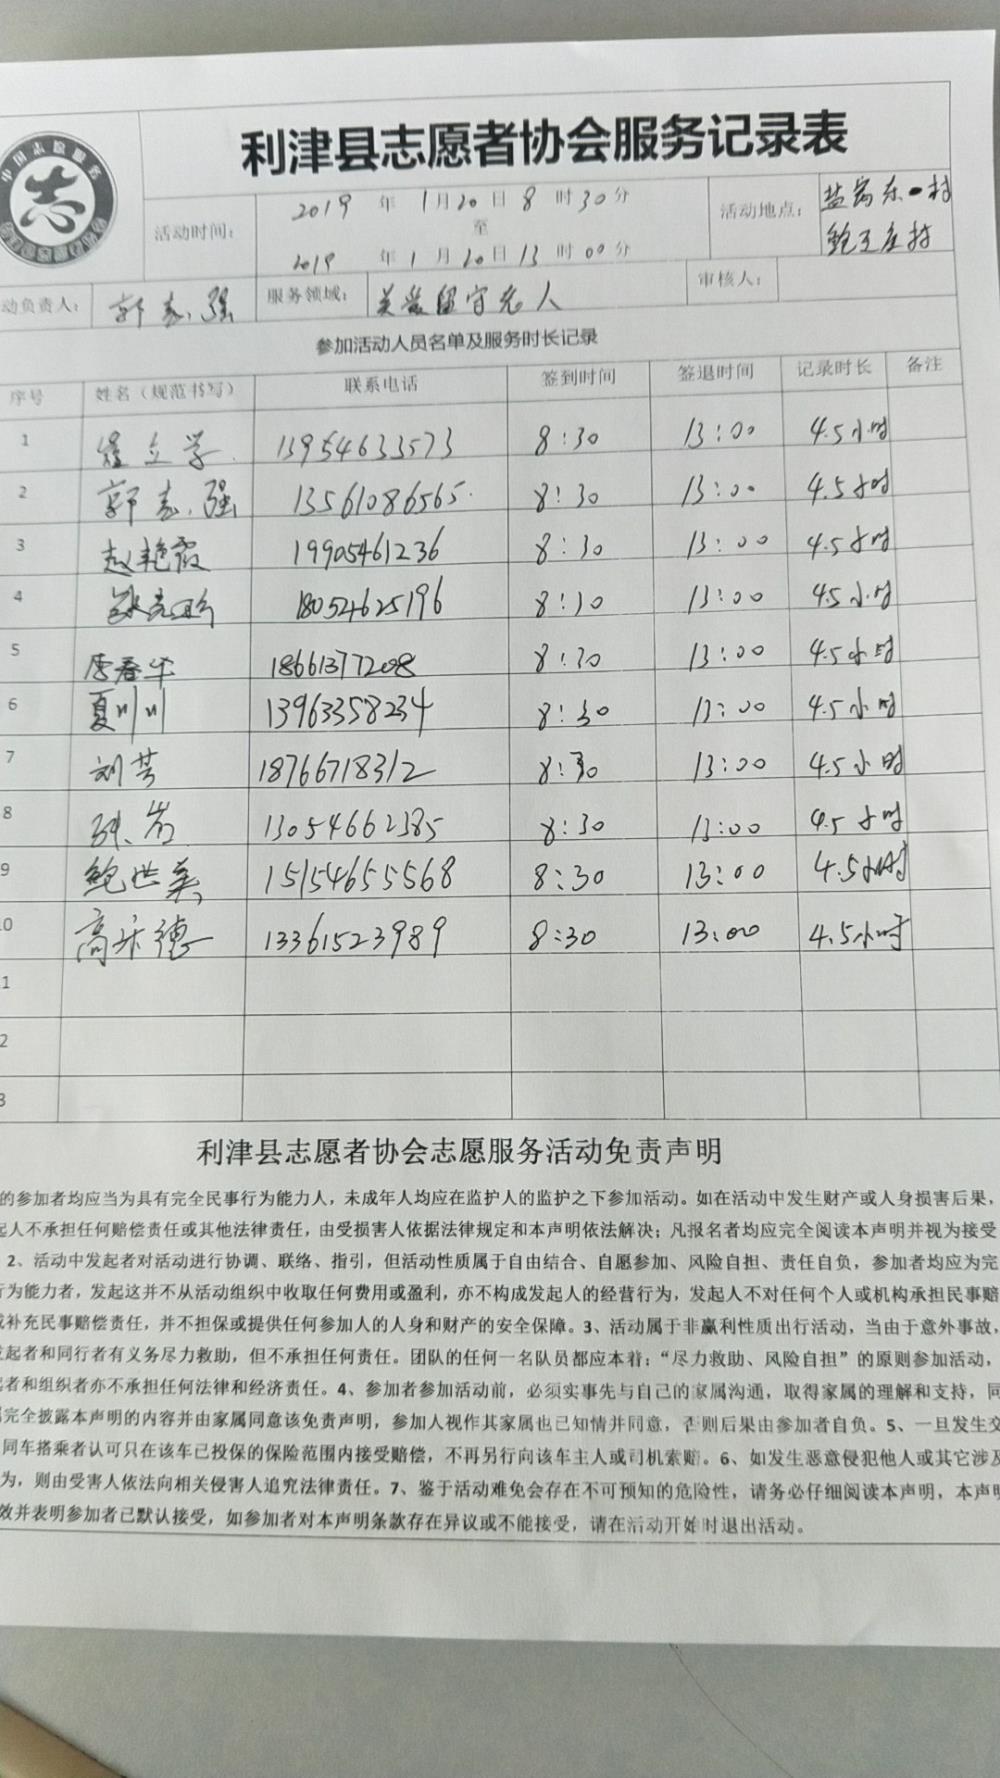 利津县志愿者协会服务记录表
中国志愿服务
志
活动时间：
2019 年 1月20日 8 时30分
至
2019 年 1 月 20日 13 时00分
活动地点：
盐窝东一村
鲍王庄村
动负责人：
服务领域：
关爱留守老人
审核人：
参加活动人员名单及服务时长记录
序号 姓名（规范书写） 联系电话 签到时间 签退时间 记录时长 备注
1 立学 13954633573 8:30 13:00 4.5小时
2 郭 强 13561086565 8:30 13:00 4.5小时
3 赵艳霞 19905461236 8:30 13:00 4.5小时
4 18054625196 8:30 13:00 4.5小时
5 李春华 18661377208 8:30 13:00 4.5小时
6 夏川川 13963358234 8:30 13:00 4.5小时
7 刘芳 18766718312 8:30 13:00 4.5小时
8 13054662385 8:30 13:00 4.5小时
9 鲍世美 15154655568 8:30 13:00 4.5小时
10 高乐德 13361523989 8:30 13:00 4.5小时
1
2
3
利津县志愿者协会志愿服务活动免责声明
的参加者均应当为具有完全民事行为能力人，未成年人均应在监护人的监护之下参加活动。如在活动中发生财产或人身损害后果，
起人不承担任何赔偿责任或其他法律责任，由受损害人依据法律规定和本声明依法解决；凡报名者均应完全阅读本声明并视为接受
2、活动中发起者对活动进行协调、联络、指引，但活动性质属于自由结合、自愿参加、风险自担、责任自负，参加者均应为完
行为能力者，发起这并不从活动组织中收取任何费用或盈利，亦不构成发起人的经营行为，发起人不对任何个人或机构承担民事赔
或补充民事赔偿责任，并不担保或提供任何参加人的人身和财产的安全保障。3、活动属于非赢利性质出行活动，当由于意外事故，
发起者和同行者有义务尽力救助，但不承担任何责任。团队的任何一名队员都应本着：“尽力救助、风险自担”的原则参加活动，
起者和组织者亦不承担任何法律和经济责任。4、参加者参加活动前，必须实事先与自己的家属沟通，取得家属的理解和支持，同
属完全披露本声明的内容并由家属同意该免责声明，参加人视作其家属也已知情并同意，否则后果由参加者自负。5、一旦发生交
同车搭乘者认可只在该车已投保的保险范围内接受赔偿，不再另行向该车主人或司机索赔。6、如发生恶意侵犯他人或其它涉及
为，则由受害人依法向相关侵害人追究法律责任。7、鉴于活动难免会存在不可预知的危险性，请务必仔细阅读本声明，本声明
效并表明参加者已默认接受，如参加者对本声明条款存在异议或不能接受，请在活动开始时退出活动。